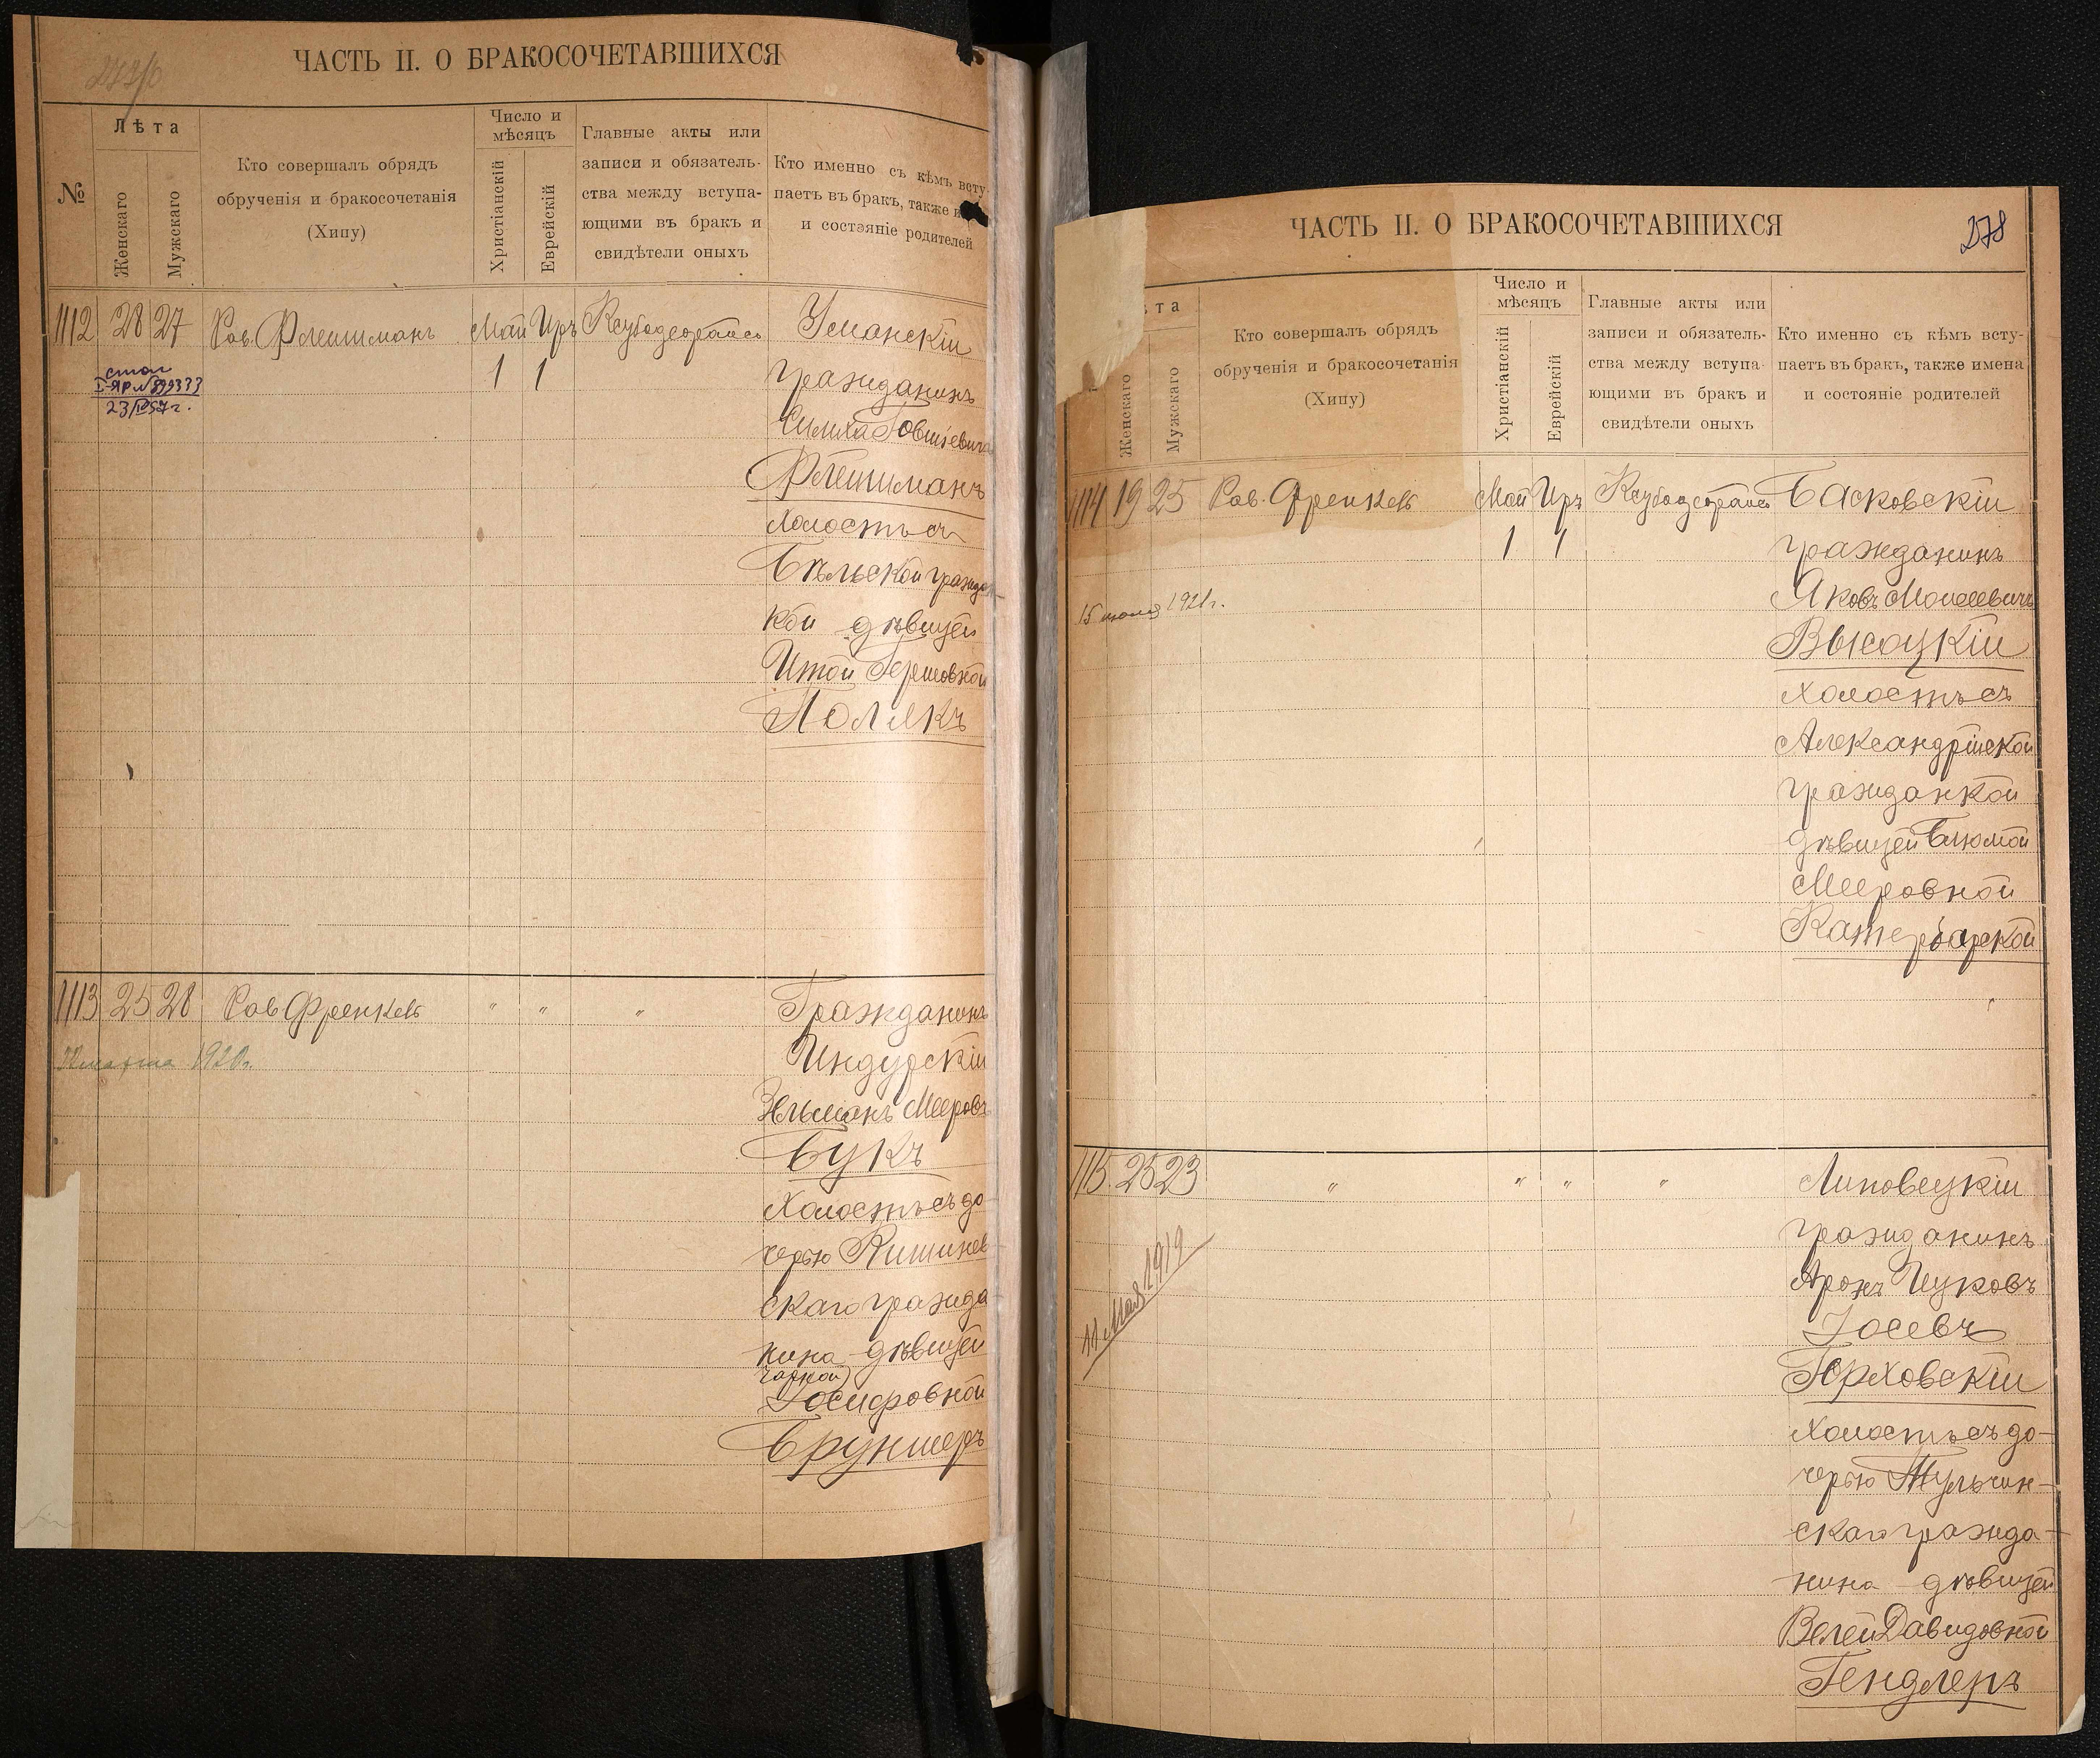 ЧАСТЬ II. О БРАКОСОЧЕТАВШИХСЯ
№
Лѣта
Женскаго
Мужскаго
Кто совершалъ обрядъ
обрученія и бракосочетанія
(Хипу)
Число и
мѣсяцъ
Христіанскій
Еврейскій
Главные акты или
записи и обязатель-
ства между вступа-
ющими въ бракъ и
свидѣтели оныхъ
Кто именно съ кѣмъ всту-
паетъ въ бракъ, также и
и состояніе родителей
1112 28 27 Рав. Флешманъ Май Иръ Уманскій
1 1 гражданинъ
I-ЯР №899333
23/IV 57 г.
Симха Говшіевичъ
Флешманъ
холостъ съ
Бѣльской гражда-
кой дѣвицей
Итой Гершовной
Полякъ
1113 25 28 Рав Френкель " " " Гражданинъ
марта 1920г. Индурскій
Зельманъ Мееровъ
Букъ
холостъ съ до
черью Кишинев
скаго гражда
нина дѣвицей
Іосифовной
Брунштеръ
ЧАСТЬ II. О БРАКОСОЧЕТАВШИХСЯ
278
та
Женскаго
Мужскаго
Кто совершалъ обрядъ
обрученія и бракосочетанія
(Хипу)
Число и
мѣсяцъ
Христіанскій
Еврейскій
Главные акты или
записи и обязатель-
ства между вступа-
ющими въ бракъ и
свидѣтели оныхъ
Кто именно съ кѣмъ всту-
паетъ въ бракъ, также имена
и состояніе родителей
1114 19 25 Рав. Френкель Май Иръ Басковскій
1 1 гражданинъ
15 1921г. Яковъ Моисеевичъ
Высоцкій
холостъ съ
Александрійской
гражданкой
дѣвицей Блюмой
Мееровной
Катербарской
1115 25 23 " " " " Липовецкій
гражданинъ
11 Мая 1919 Аронъ Ицковъ
Іосевъ
Горховскій
холостъ съ до-
черью Тульчин-
скаго гражда-
нина дѣвицей
Велей Давидовной
Гендлеръ